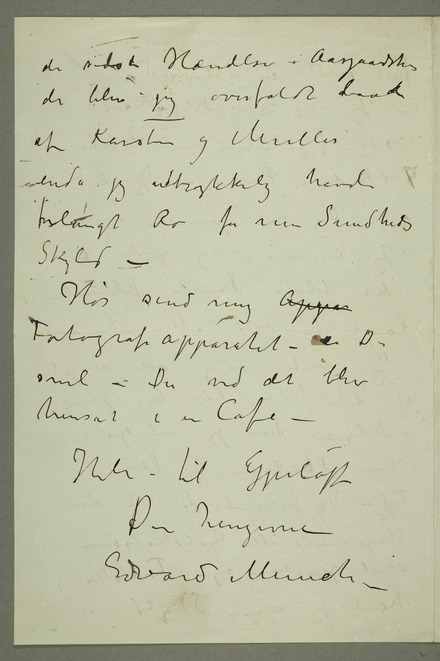 de sidste Hændelser i Aasgaardstr
der blev jeg overfaldt baade
af Karsten og Mulles
enda jeg udtrykkelig havde
forlangt Ro for min Sundheds
Skyld –
Hør send mig Appar
Fotografiapparatet – er Du
snil – Du ved det blev
hensat i en Cafe –
Hils – til
Din hengivne
Edvard Munch –